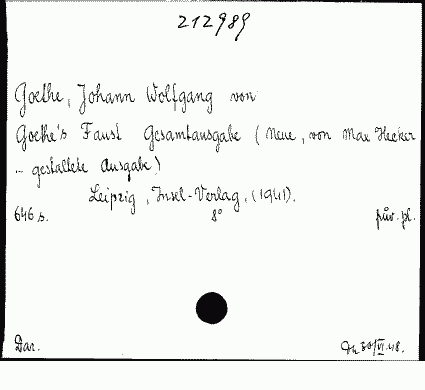 212989
Goethe, Johann Wolfgang von
Goethe's Faust Gesamtausgabe (Neue, von Max Hecker
... gestaltete Ausgabe)
Leipzig, Insel-Verlag, (1941).
646 s. 8° pův. pl.
Dar. 30/VI.48.